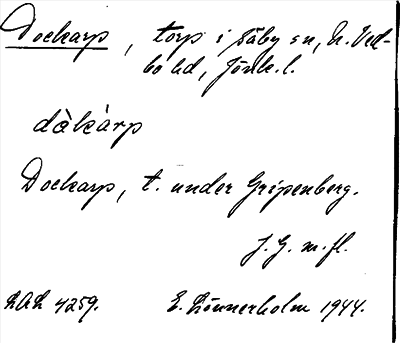 Dockarp, torp i Säby sn, N. Ved-
bo hd, Jönk. l.
dàkàrp
Dockarp, t. under Gripenberg.
J. G. m. fl.
LAL 4259. E. Lönnerholm 1944.